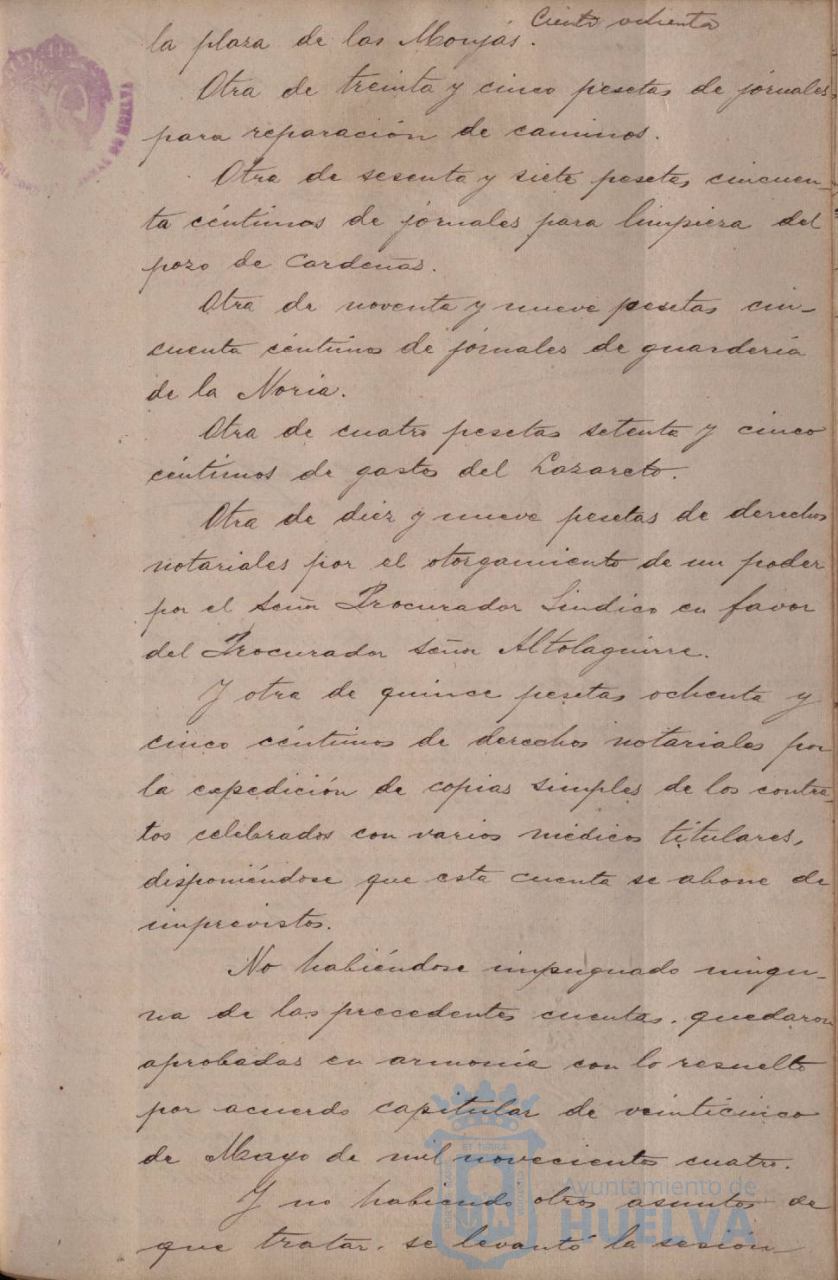 Ciento ochenta
la plaza de las Monjas.
Otra de treinta y cinco pesetas de jornales
para reparación de caminos.
Otra de sesenta y siete pesetas cincuen-
ta céntimos de jornales para limpieza del
pozo de Cardeñas.
Otra de noventa y nueve pesetas cin-
cuenta céntimos de jornales de guardería
de la Noria.
Otra de cuatro pesetas setenta y cinco
céntimos de gastos del Lazareto.
Otra de diez y nueve pesetas de derechos
notariales por el otorgamiento de un poder
por el Señor Procurador Síndico en favor
del Procurador Señor Altolaguirre.
Y otra de quince pesetas ochenta y
cinco céntimos de derechos notariales por
la expedición de copias simples de los contra
tos celebrados con varios médicos titulares,
disponiéndose que esta cuenta se abone de
imprevistos.
No habiéndose impugnado ningu-
na de las precedentes cuentas, quedaron
aprobadas en armonía con lo resuelto
por acuerdo capitular de veinticinco
de Mayo de mil novecientos cuatro.
Y no habiendo otros asuntos de
que tratar, se levantó la sesión
Ayuntamiento de
HUELVA